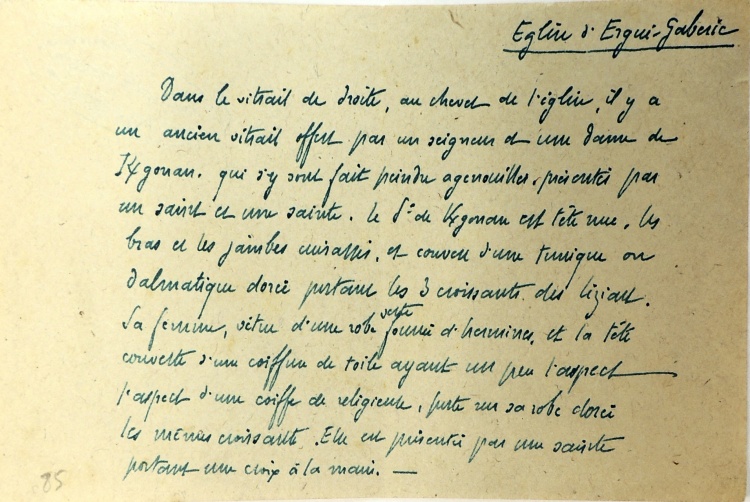 Eglise d'Ergué-Gaberic
Dans le vitrail de droite, au chevet de l'église, il y a
un ancien vitrail offert par un seigneur et une dame de
K/gonan. qui s'y sont fait peindre agenouillés, présentés par
un saint et une sainte. Le Sr de K/gonan est tête nue, les
bras et les jambes cuirassés, et couvert d'une tunique ou
dalmatique dorée portant les 3 croissants des Liziart.
Sa femme, vêtue d'une robe verte fourrée d'hermines, et la tête
couverte d'une coiffure de toile ayant un peu l'aspect
l'aspect d'une coiffe de religieuse, porte sur sa robe dorée
les mêmes croissants. Elle est présentée par une sainte
portant une croix à la main. —
85